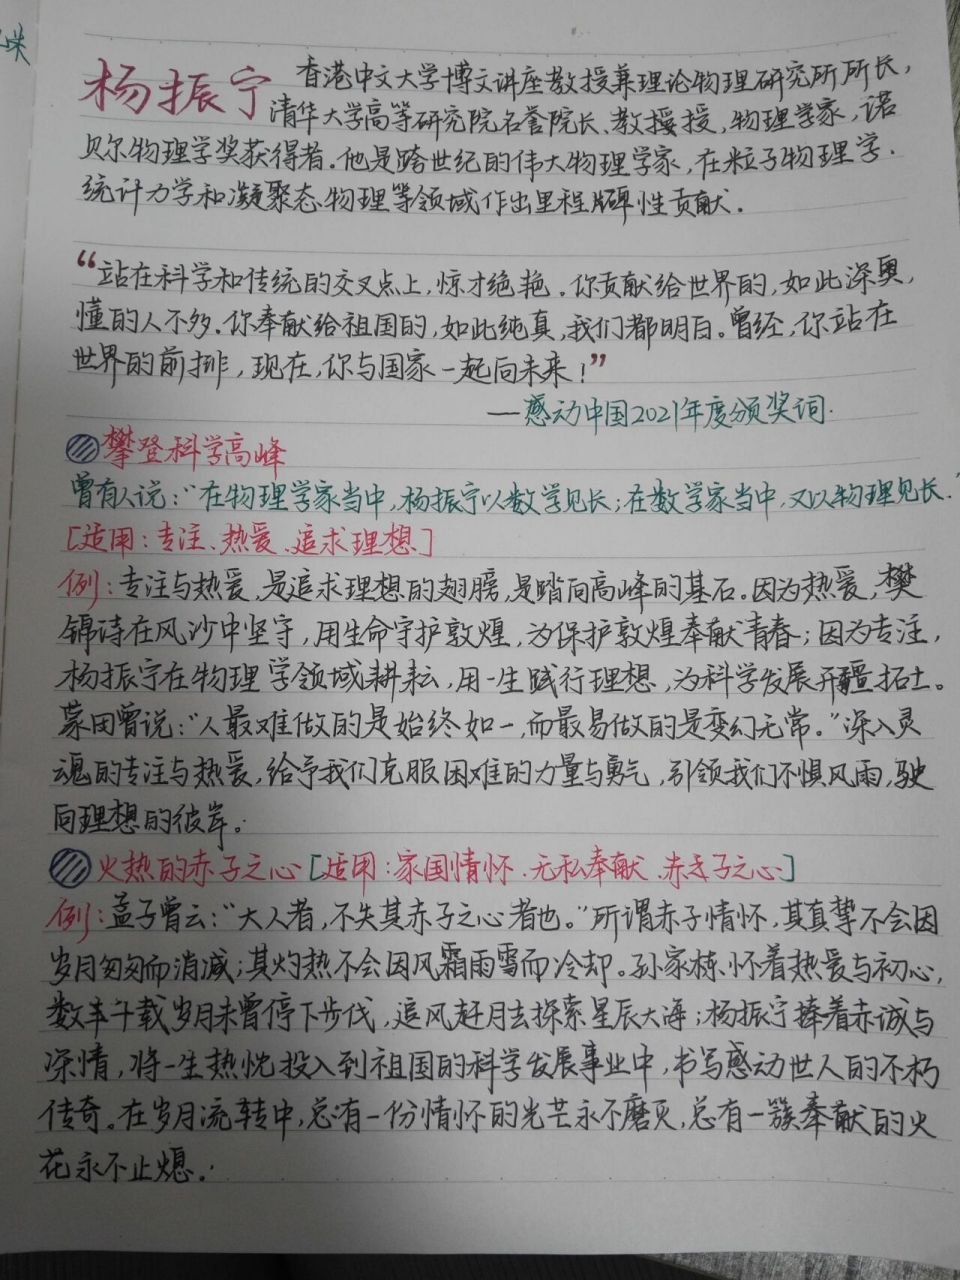 杨振宁 香港中文大学博文讲座教授兼理论物理研究所所长，
清华大学高等研究院名誉院长、教授，物理学家，诺
贝尔物理学奖获得者。他是跨世纪的伟大物理学家，在粒子物理学、
统计力学和凝聚态物理等领域作出里程碑性贡献。
“站在科学和传统的交叉点上，惊才绝艳。你贡献给世界的，如此深奥，
懂的人不多。你奉献给祖国的，如此纯真，我们都明白。曾经，你站在
世界的前排，现在，你与国家一起向未来！”
——感动中国2021年度颁奖词.
攀登科学高峰
曾有人说：“在物理学家当中，杨振宁以数学见长；在数学家当中，又以物理见长.”
[适用：专注、热爱、追求理想]
例：专注与热爱，是追求理想的翅膀，是踏向高峰的基石。因为热爱，樊
锦诗在风沙中坚守，用生命守护敦煌，为保护敦煌奉献青春；因为专注，
杨振宁在物理学领域耕耘，用一生践行理想，为科学发展开疆拓土。
蒙田曾说：“人最难做的是始终如一，而最易做的是变幻无常。”深入灵
魂的专注与热爱，给予我们克服困难的力量与勇气，引领我们不惧风雨，驶
向理想的彼岸。
火热的赤子之心 [适用：家国情怀、无私奉献、赤子之心]
例：孟子曾云：“大人者，不失其赤子之心者也。”所谓赤子情怀，其真挚不会因
岁月匆匆而消减；其灼热不会因风霜雨雪而冷却。孙家栋怀着热爱与初心，
数丰千载岁月未曾停下步伐，追风赶月去探索星辰大海；杨振宁捧着赤诚与
深情，将一生热忱投入到祖国的科学发展事业中，书写感动世人的不朽
传奇。在岁月流转中，总有一份情怀的光芒永不磨灭，总有一簇奉献的火
花永不止熄。